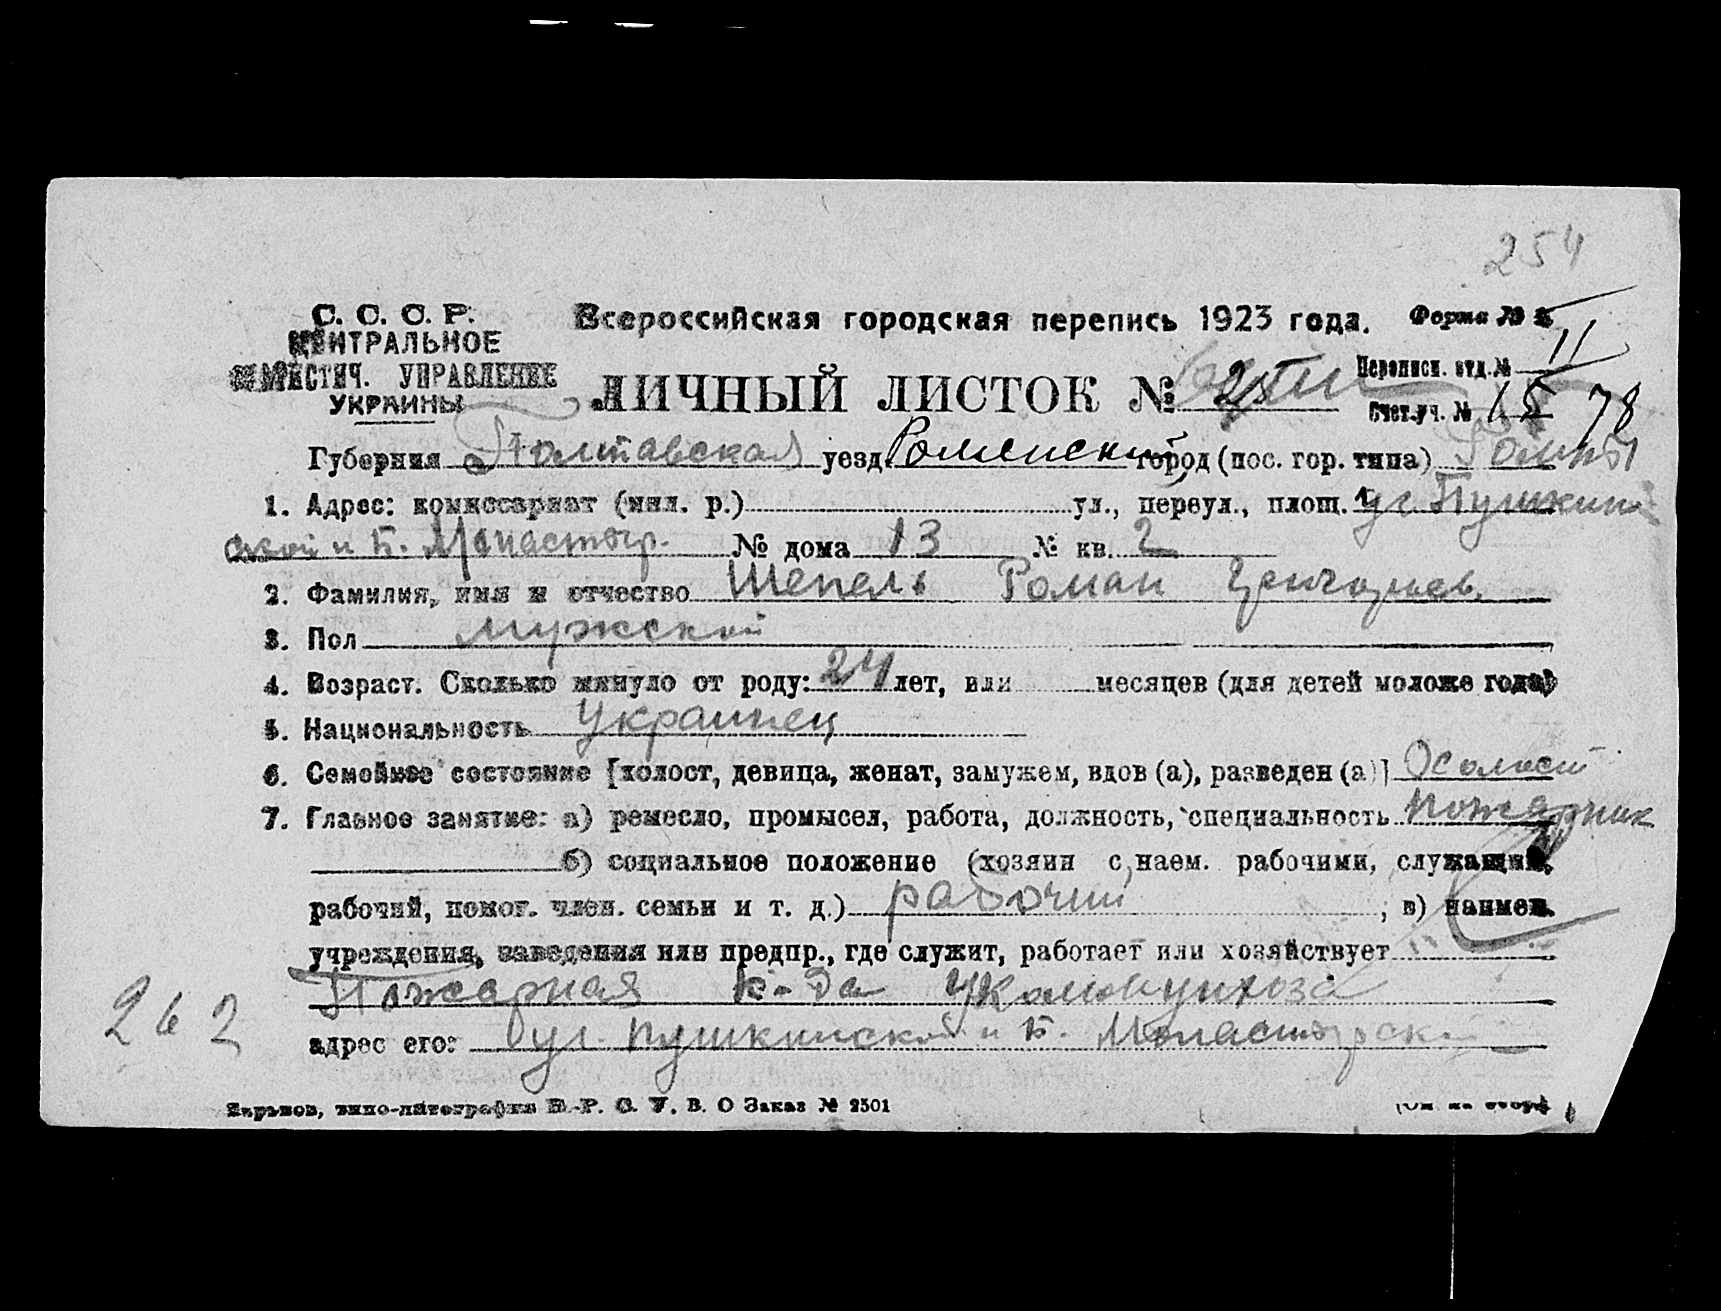 254
С. С. С. Р.
ЦЕНТРАЛЬНОЕ
СТАТИСТИЧ. УПРАВЛЕНИЕ
УКРАИНЫ
Всероссийская городская перепись 1923 года.
Форма №
Переписн. отд. № II
ЛИЧНЫЙ ЛИСТОК №
Счет. уч. № 15 78
Губерния Полтавская уезд Роменский город (пос. гор. типа) Ромны
1. Адрес: комиссариат (мил. р.) ул., переул., площ. уг. Пушкин
ской и Б. Монастыр. № дома 13 № кв. 2
2. Фамилия, имя и отчество Шепель Роман Григорьев.
3. Пол мужской
4. Возраст. Сколько минуло от роду: 24 лет, или месяцев (для детей моложе года)
5. Национальность Украинец
6. Семейное состояние [холост, девица, женат, замужем, вдов (а), разведен (а)] Холост
7. Главное занятие: а) ремесло, промысел, работа, должность, специальность пожарник
б) социальное положение (хозяин с наем. рабочими, служащий,
рабочий, помог. член. семьи и т. д.) рабочий ; в) наимен.
учреждения, заведения или предпр., где служит, работает или хозяйствует
Пожарная к-да Укомунхоза
262
адрес его: уг. Пушкинской и Б. Монастырск
Харьков, типо-литография В. О Заказ № 2501